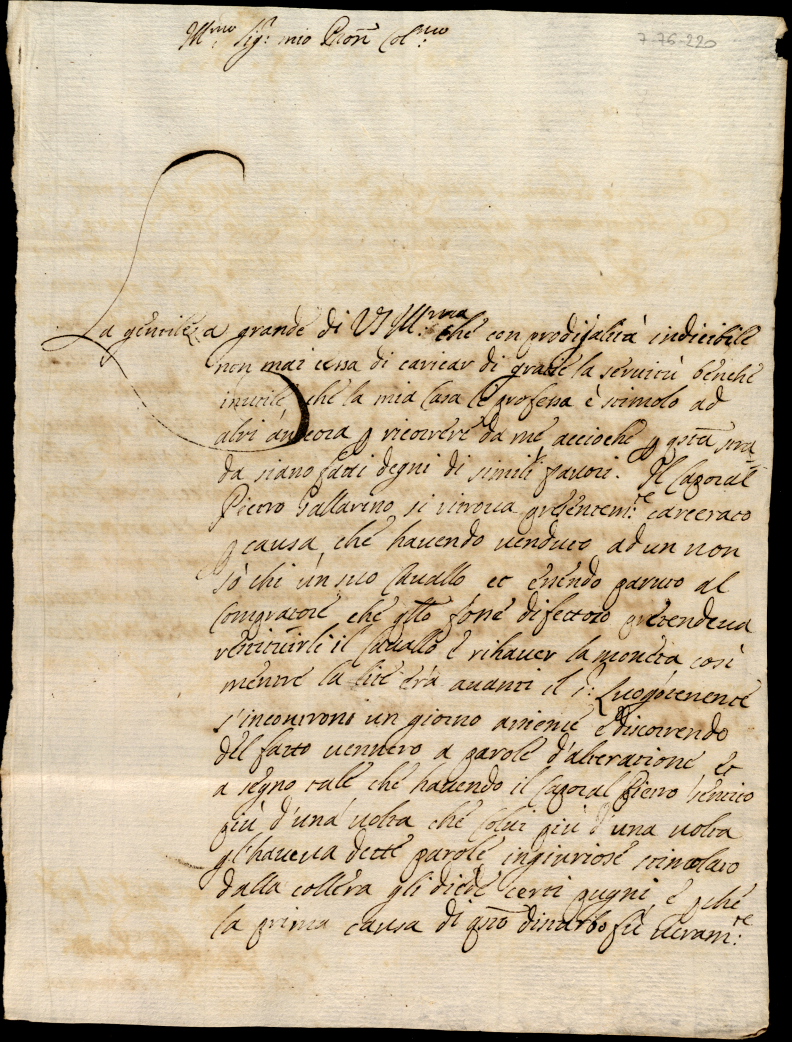 Ill.mo Sig.r mio Pron Col.mo
7-76-220
La gentileza grande di VS Ill.rma che con prodigalità indicibile
non mai cessa di caricar di gratie la servitù benche
inutile che la mia Casa le professa è stimolo ad
altri ancora p ricorrere da me accioche p qsta stra
da siano fatti degni di simili favori. Il Caporal
Pietro Gallarino si ritrova presentem:te carcerato
p causa che havendo venduto ad un non
sò chi un suo Cavallo et essendo paruto al
Compratore che qllo fosse difettoso pretendeva
restituirli il Cavallo e rihaver la moneta così
mentre la lite era avanti il s: Luogotenente
s'incontrono un giorno assieme e discorrendo
del fatto vennero a parole d'alteratione et
a segno tale che havendo il Caporal Pietro sentito
più d'una volta che Colui più d'una volta
gl'haveva dette parole ingiuriose stimolato
dalla collera gli diede certi pugni e pche
la prima causa di qsto disturbo fù veram:te